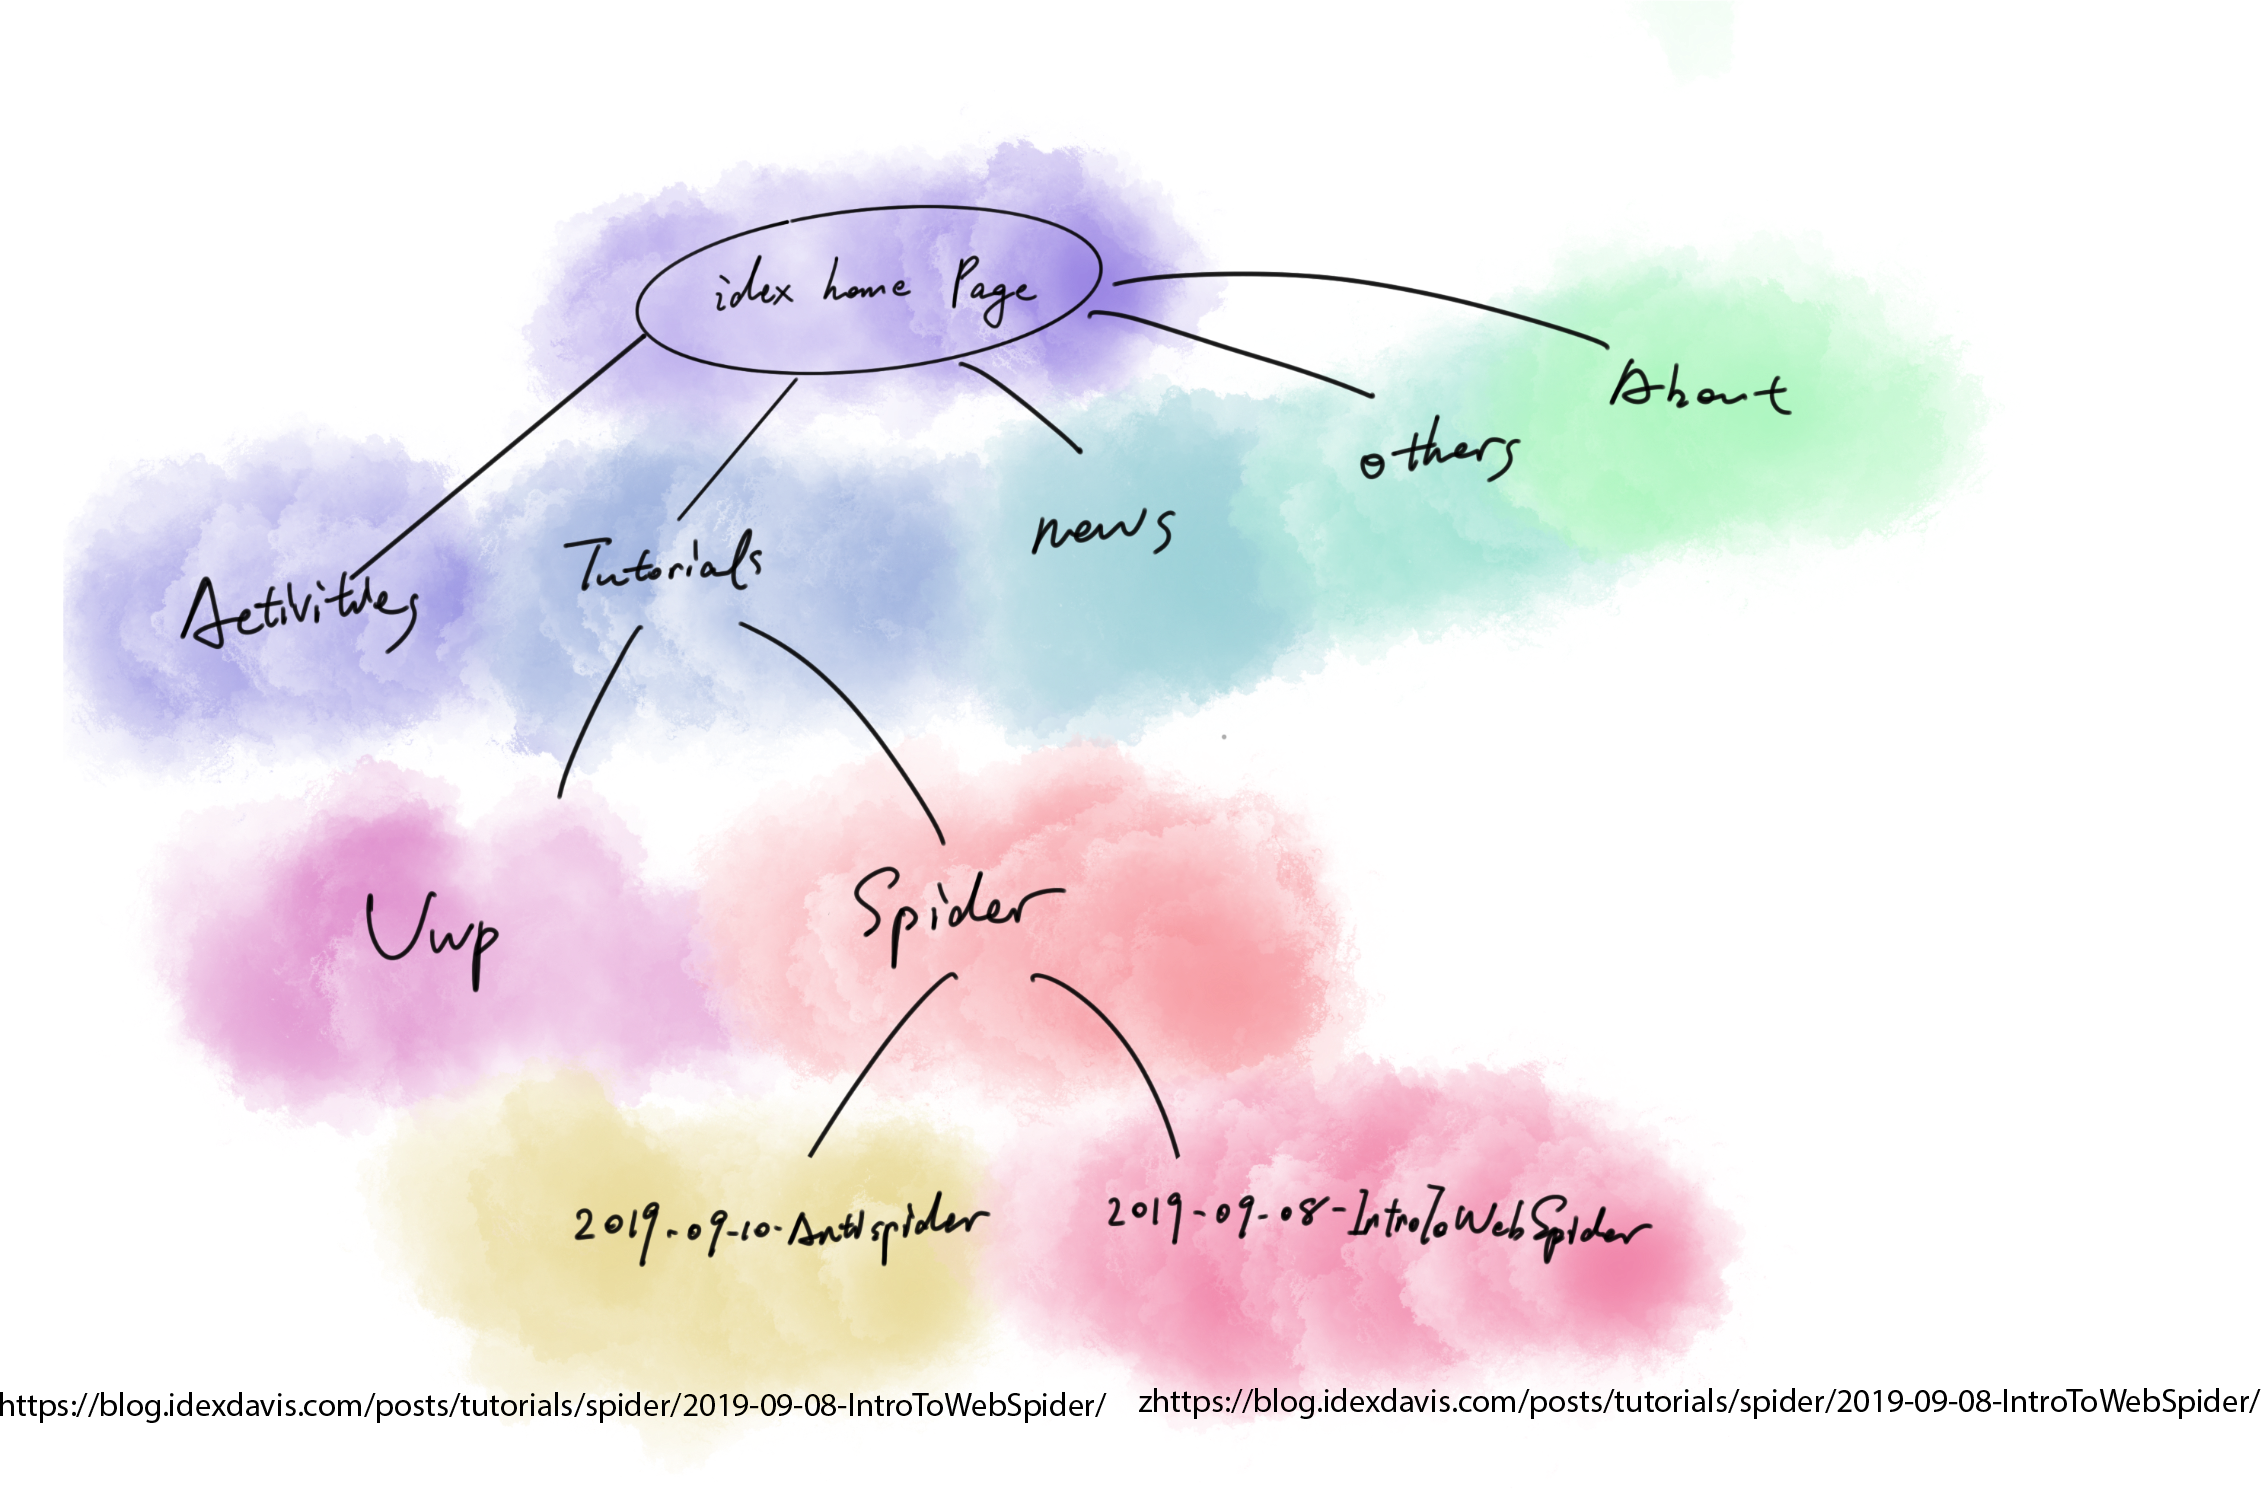 idex home Page
About
others
news
Tutorials
Activities
Uwp
Spider
2019-09-10-Antispider
2019-09-08-IntroToWebSpider
https://blog.idexdavis.com/posts/tutorials/spider/2019-09-08-IntroToWebSpider/
zhttps://blog.idexdavis.com/posts/tutorials/spider/2019-09-08-IntroToWebSpider/